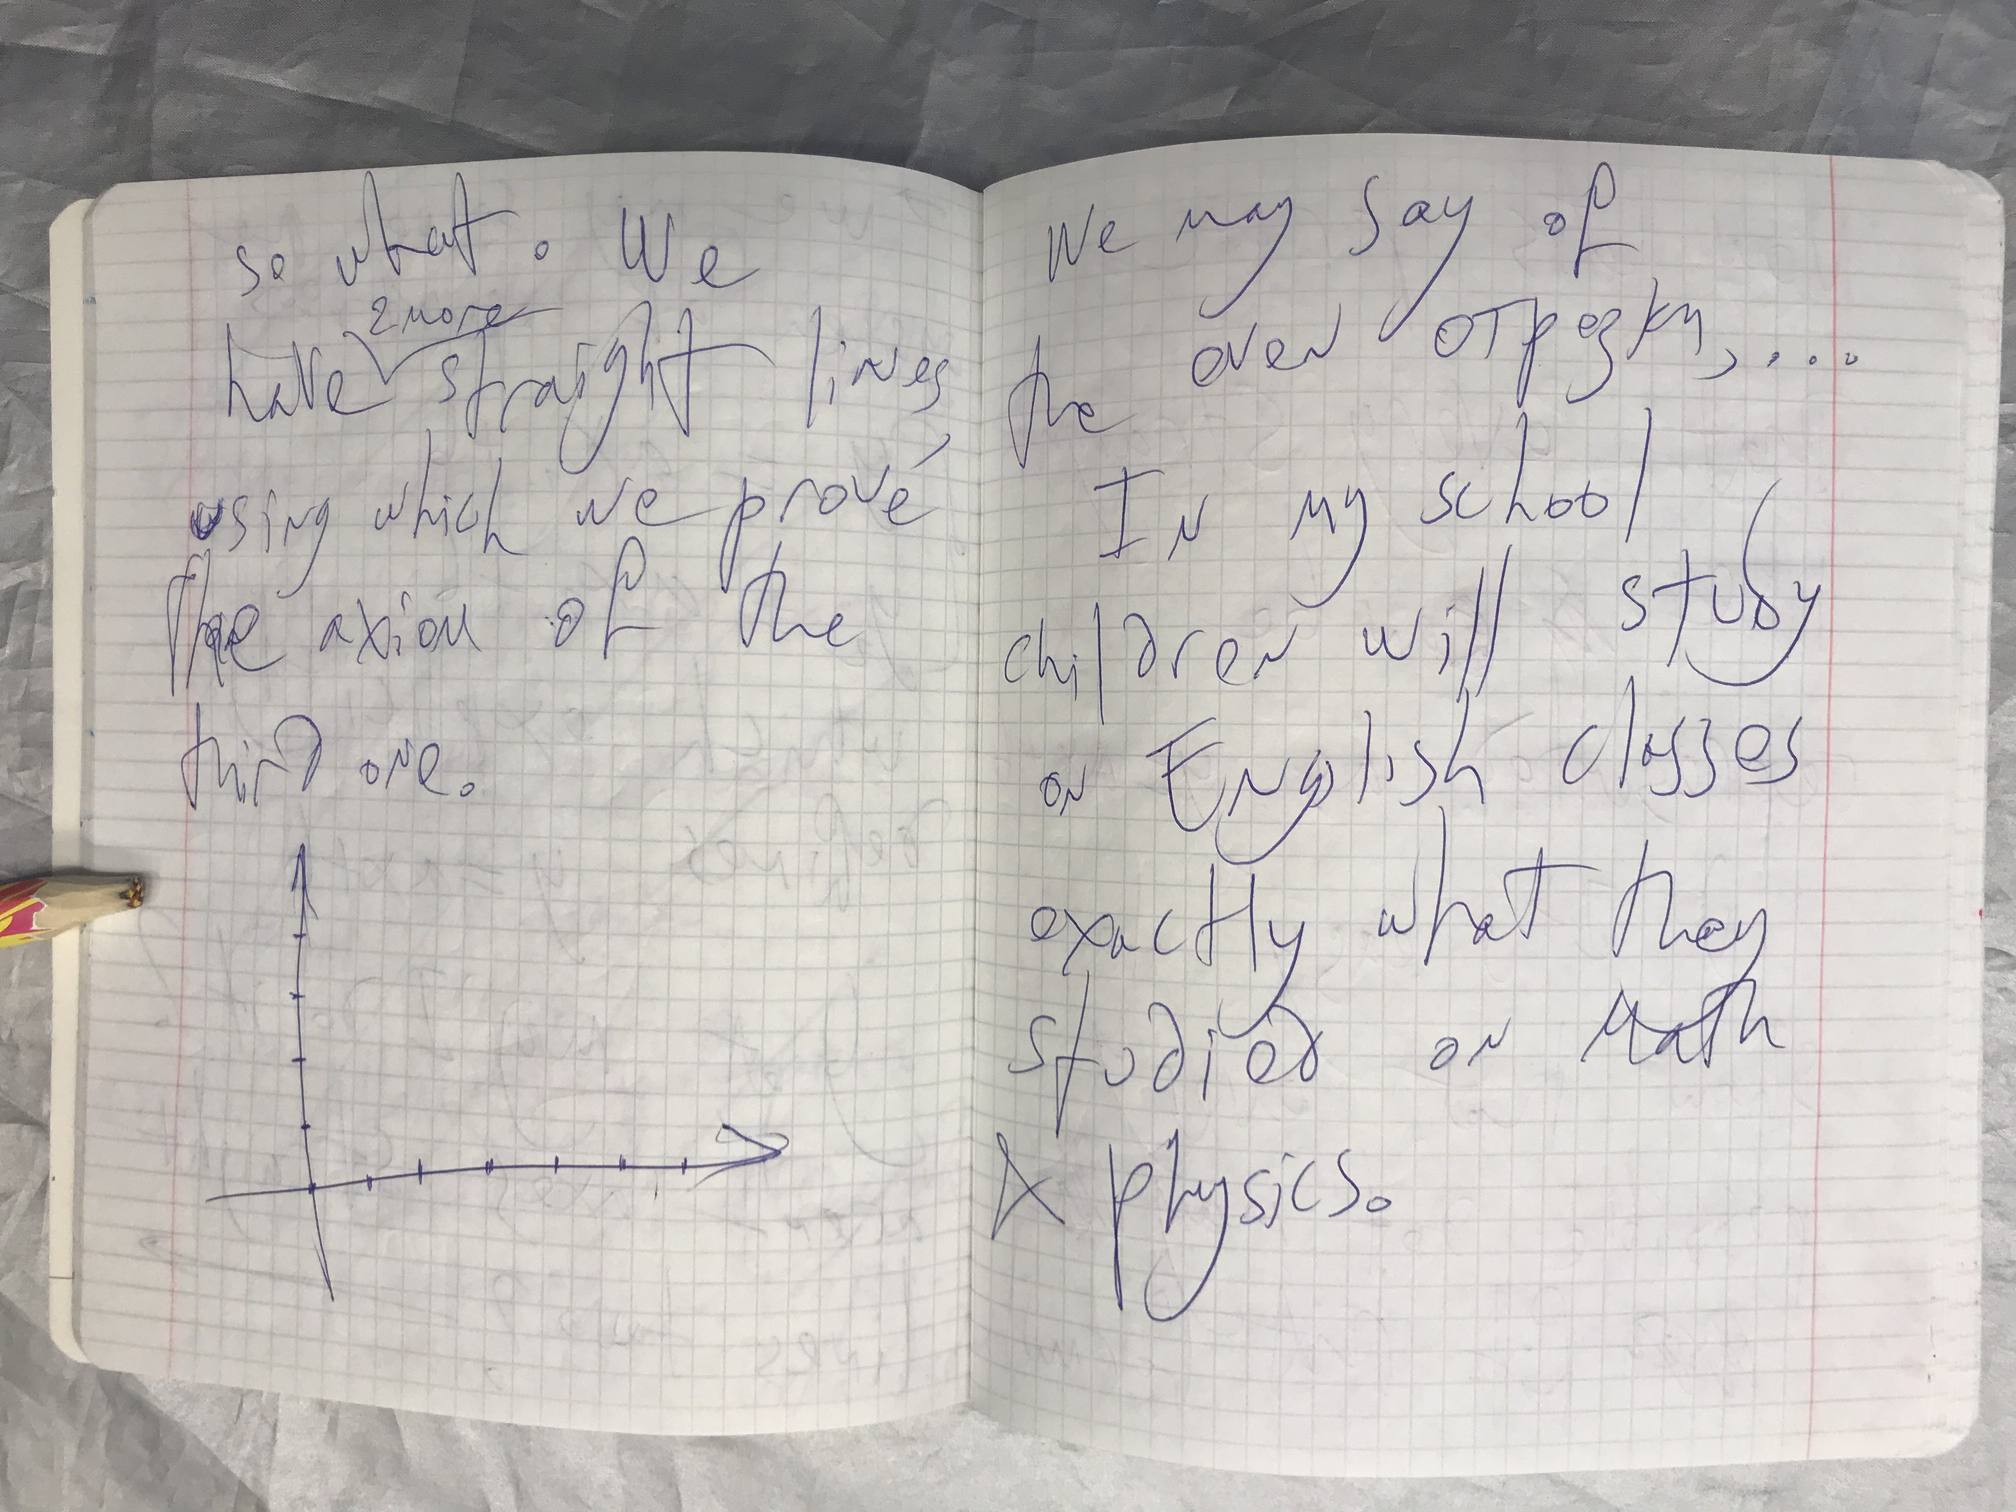 so what. We
2 more
have straight lines,
using which we prove
the axiom of the
third one.
We may say of
the even отрезки, ....
In my school
children will study
on English classes
exactly what they
studied on Math
& physics.